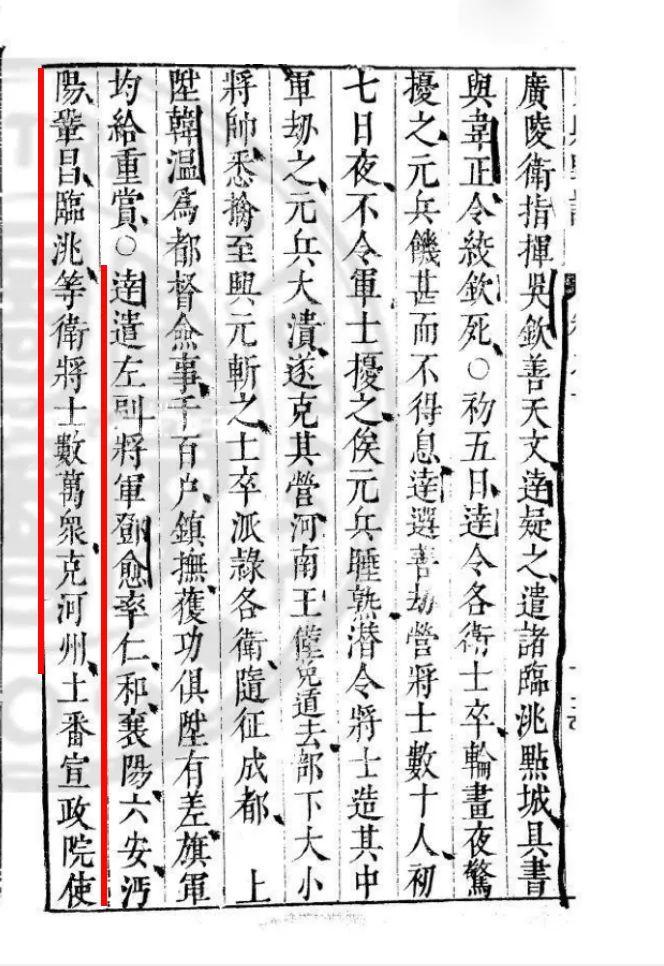 廣陵衛指揮吳欽善天文達疑之遣諸臨洮點城具書
與韋正令絞欽死○初五日達令各衛士卒輪晝夜驚
擾之元兵饑甚而不得息達選善劫營將士數十人初
七日夜不令軍士擾之俟元兵睡熟潛令將士造其中
軍劫之元兵大潰遂克其營河南王僅脫道去部下大小
將帥悉擒至興元斬之士卒派隸各衛隨征成都 上
陞韓溫為都督僉事千百户鎮撫獲功俱陞有差旗軍
均給重賞○達遣左副將軍鄧愈率仁和襄陽六安沔
陽鞏昌臨洮等衛將士數萬衆克河州土番宣政院使